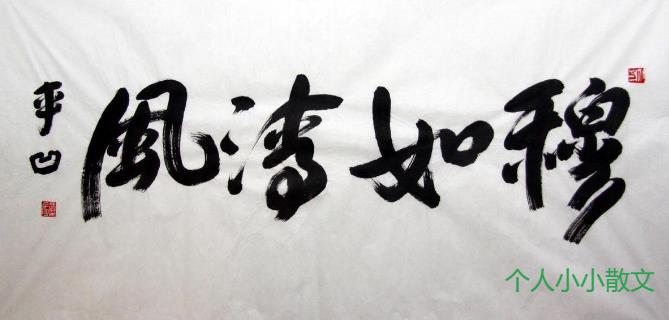 穆如清風
平凹
个人小小散文